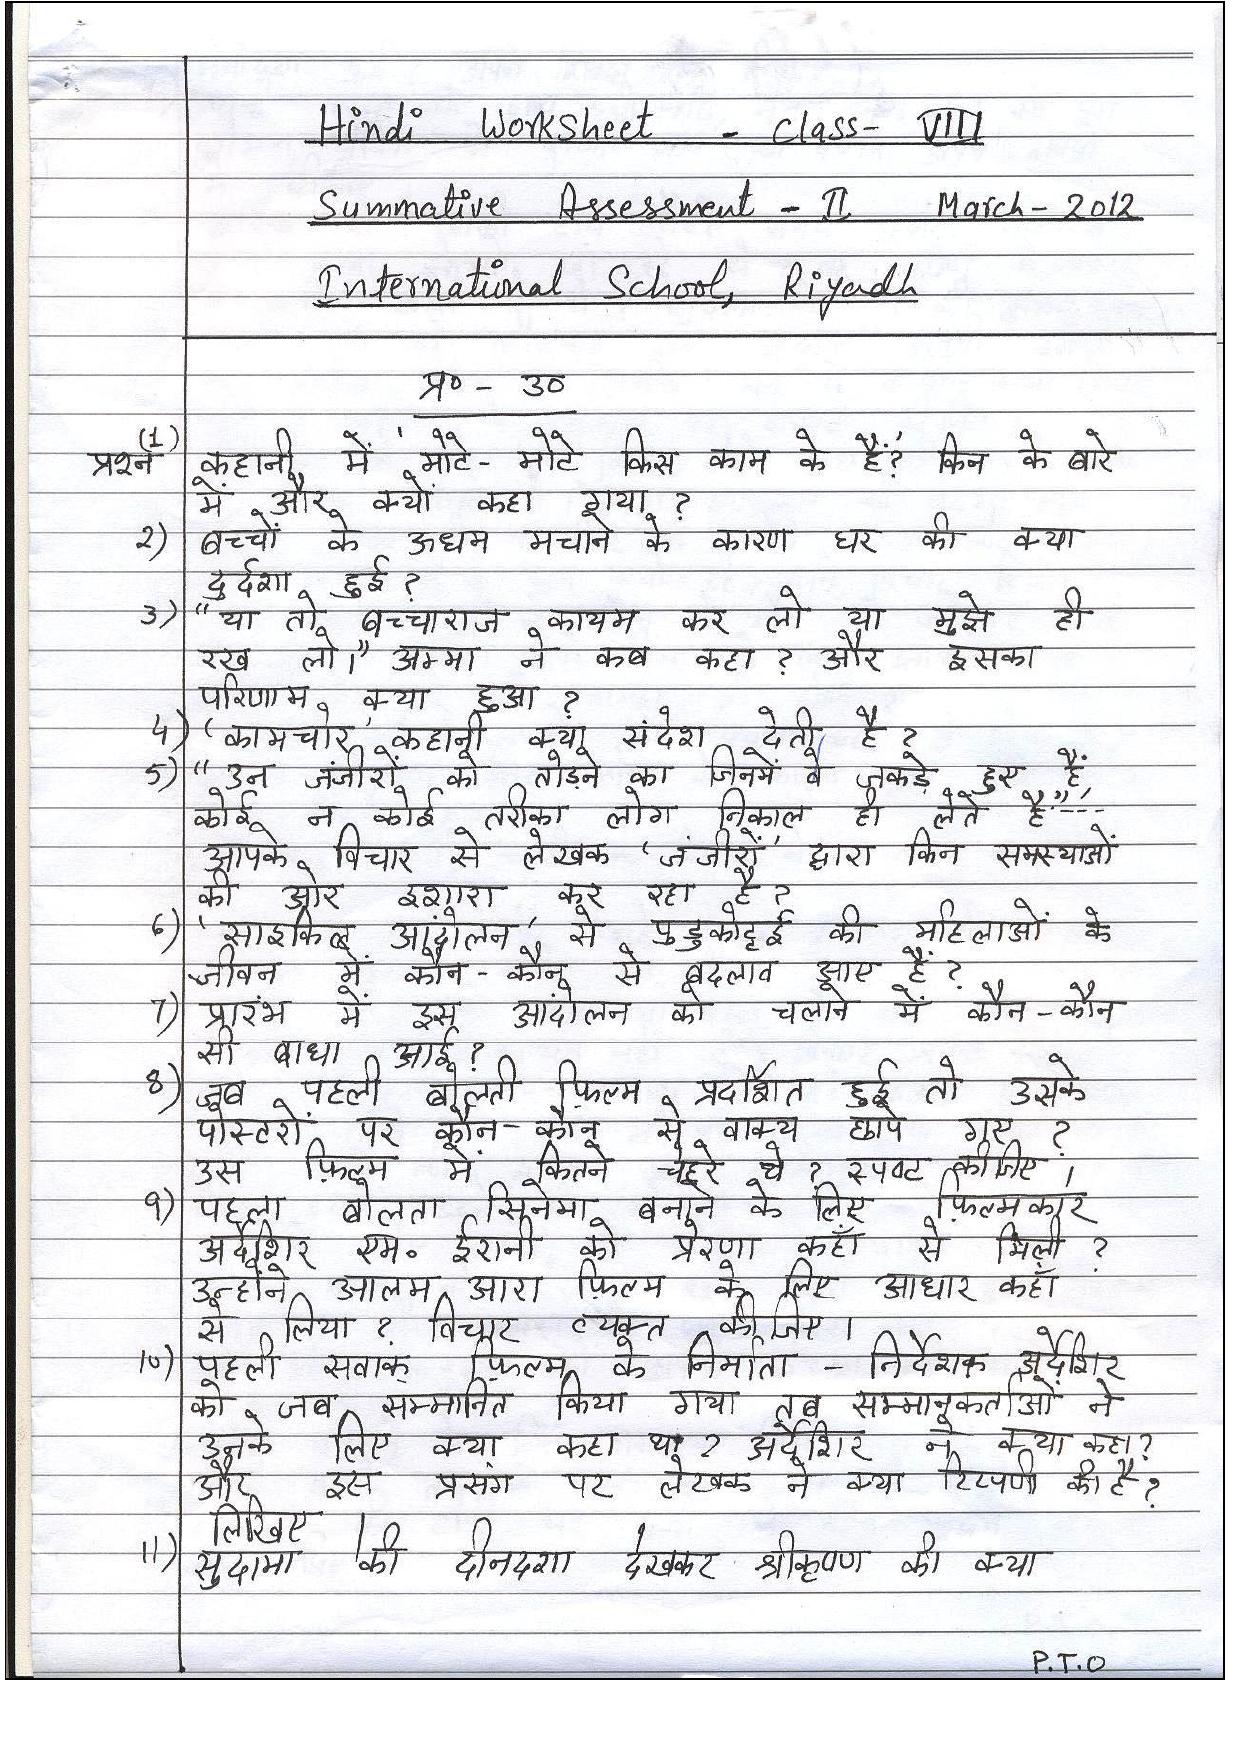 Hindi Worksheet - Class- VIII
Summative Assessment - II March - 2012
International School, Riyadh
प्र० - उ०
प्रश्न (1) कहानी में 'मोटे-मोटे किस काम के हैं?' किन के बारे
में और क्यों कहा गया ?
2) बच्चों के ऊधम मचाने के कारण घर की क्या
दुर्दशा हुई ?
3) "या तो बच्चाराज कायम कर लो या मुझे ही
रख लो।" अम्मा ने कब कहा ? और इसका
परिणाम क्या हुआ ?
4) 'कामचोर' कहानी क्या संदेश देती है ?
5) "उन जंजीरों को तोड़ने का जिनमें वे जकड़े हुए हैं
कोई न कोई तरीका लोग निकाल ही लेते हैं"---
आपके विचार से लेखक 'जंजीरों' द्वारा किन समस्याओं
की ओर इशारा कर रहा है ?
6) 'साइकिल आंदोलन' से पुडुकोट्टई की महिलाओं के
जीवन में कौन-कौन से बदलाव आए हैं ?
7) प्रारंभ में इस आंदोलन को चलाने में कौन-कौन
सी बाधा आई ?
8) जब पहली बोलती फ़िल्म प्रदर्शित हुई तो उसके
पोस्टरों पर कौन-कौन से वाक्य छापे गए ?
उस फ़िल्म में कितने चेहरे थे ? स्पष्ट कीजिए ।
9) पहला बोलता सिनेमा बनाने के लिए फ़िल्मकार
अर्देशिर एम० ईरानी को प्रेरणा कहाँ से मिली ?
उन्होंने आलम आरा फ़िल्म के लिए आधार कहाँ
से लिया ? विचार व्यक्त कीजिए ।
10) पहली सवाक् फ़िल्म के निर्माता - निर्देशक अर्देशिर
को जब सम्मानित किया गया तब सम्मानकर्ताओं ने
उनके लिए क्या कहा था ? अर्देशिर ने क्या कहा ?
और इस प्रसंग पर लेखक ने क्या टिप्पणी की है ?
लिखिए ।
11) सुदामा की दीनदशा देखकर श्रीकृष्ण की क्या
P.T.O